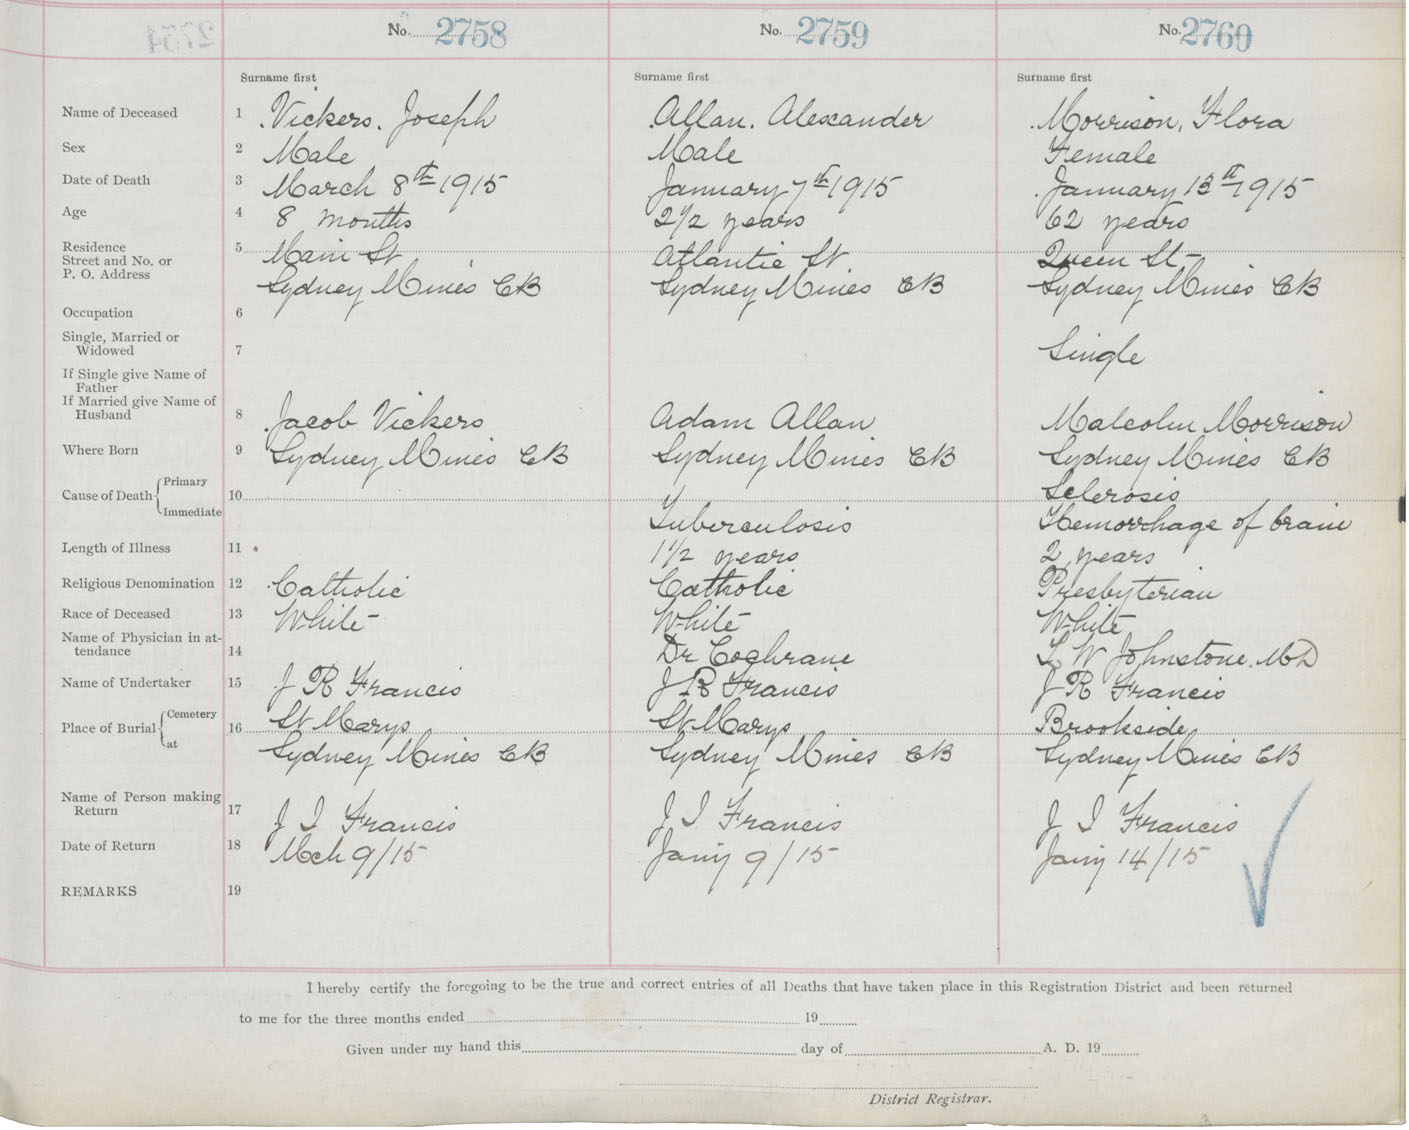 No. 2758 No. 2759 No. 2760
Surname first Surname first Surname first
Name of Deceased 1 Vickers. Joseph Allan. Alexander Morrison, Flora
Sex 2 Male Male Female
Date of Death 3 March 8th 1915 January 7th 1915 January 13th 1915
Age 4 8 months 2 1/2 years 62 years
Residence 5 Main St Atlantic St Queen St
Street and No. or
P. O. Address Sydney Mines CB Sydney Mines CB Sydney Mines CB
Occupation 6
Single, Married or
Widowed 7 Single
If Single give Name of
Father
If Married give Name of
Husband 8 Jacob Vickers Adam Allan Malcolm Morrison
Where Born 9 Sydney Mines CB Sydney Mines CB Sydney Mines CB
Cause of Death Primary 10 Sclerosis
Immediate Tuberculosis Hemorrhage of brain
Length of Illness 11 1 1/2 years 2 years
Religious Denomination 12 Catholic Catholic Presbyterian
Race of Deceased 13 White White White
Name of Physician in at-
tendance 14 Dr Cochrane L W Johnstone. MD
Name of Undertaker 15 J R Francis J R Francis J R Francis
Place of Burial Cemetery 16 St Marys St Marys Brookside
at Sydney Mines CB Sydney Mines CB Sydney Mines CB
Name of Person making
Return 17 J I Francis J I Francis J I Francis
Date of Return 18 Mch 9/15 Jany 9/15 Jany 14/15
REMARKS 19
I hereby certify the foregoing to be the true and correct entries of all Deaths that have taken place in this Registration District and been returned
to me for the three months ended 19
Given under my hand this day of A. D. 19
District Registrar.